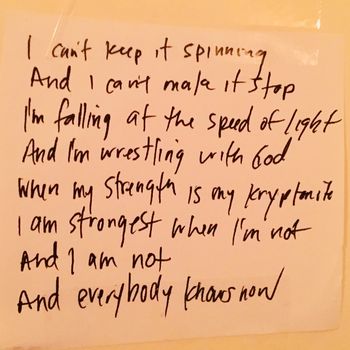 I can't keep it spinning
And I can't make it stop
I'm falling at the speed of light
And I'm wrestling with God
When my strength is my kryptonite
I am strongest when I'm not
And I am not
And everybody knows now